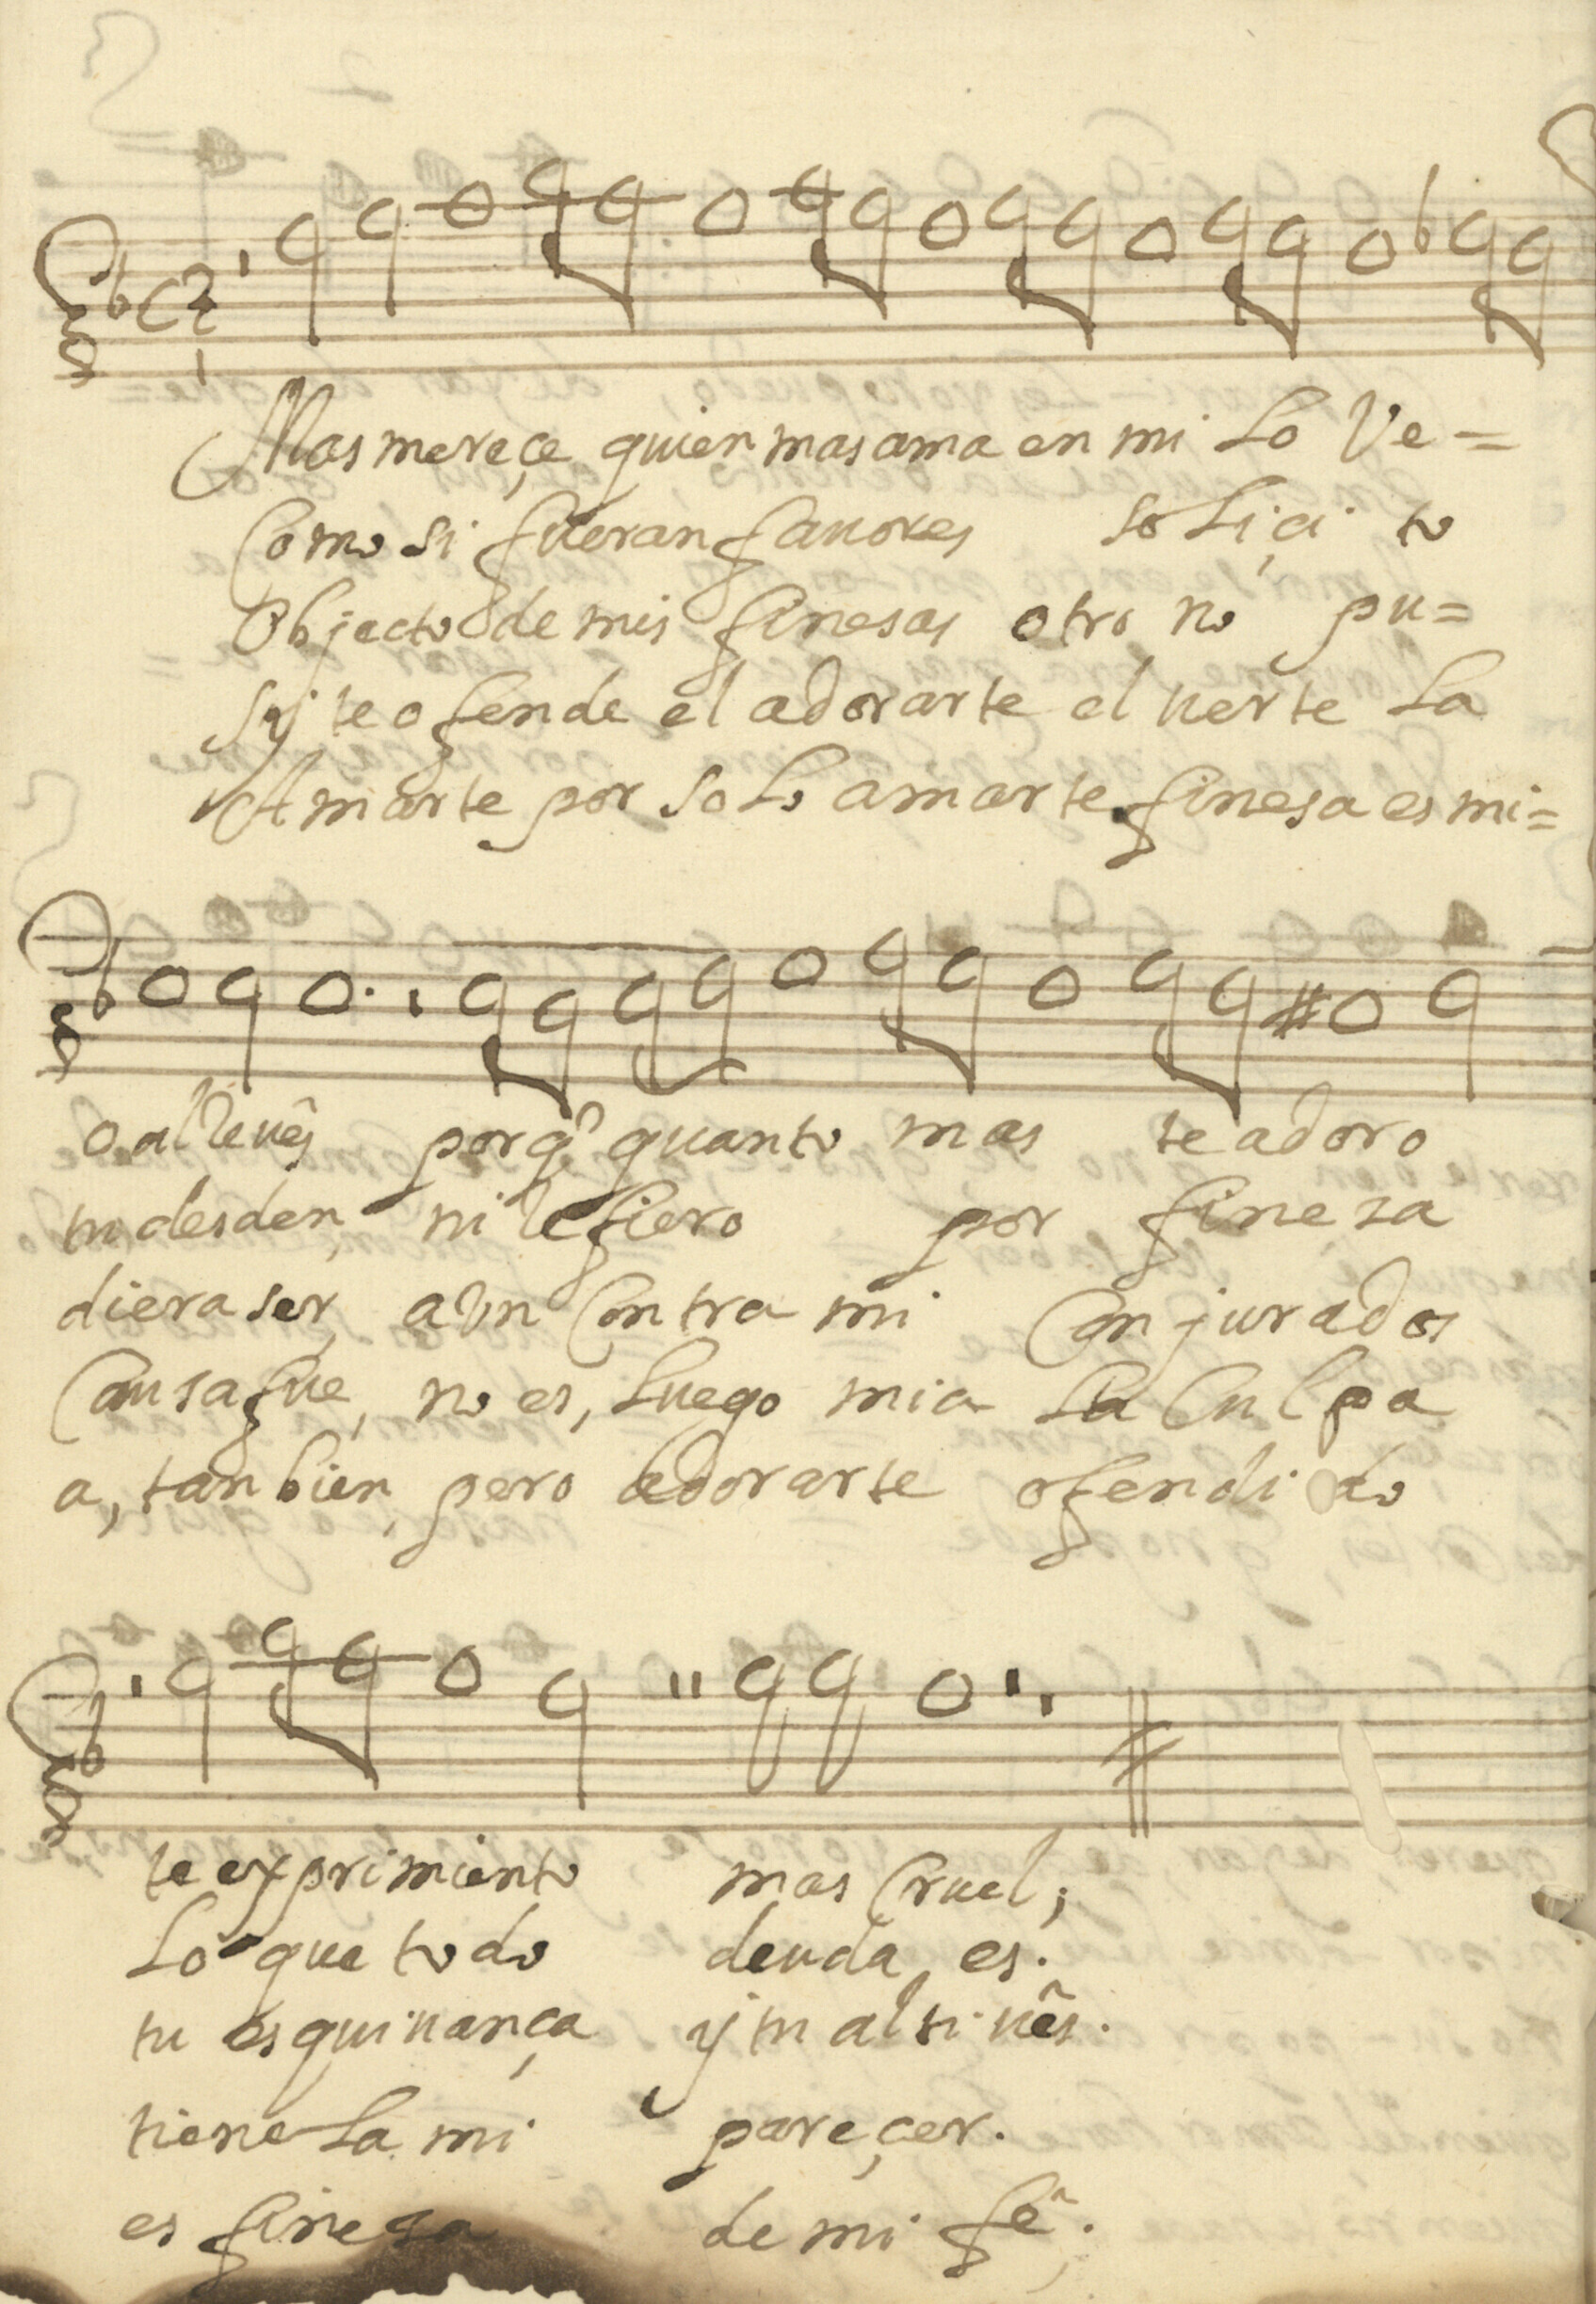 Mas mereçe quien mas ama en mi lo Ve=
Como si fueran fauores soliçito
Objecto de mis finesas otro no pu=
Sy te ofende el adorarte el uerte la
Amarte por solo amarte finesa es mi=
o al reues porq̃ quanto mas te adoro
tu desden, ni le fiero por finesa
diera ser, aun Contra mi Conjurados
Causa fue, no es, luego mia la Culpa
a, tanbien, pero adorarte ofendido
te experimento mas Cruel;
lo que todo deuda es.
tu esquiuança y tu altiuês.
tiene la mi pareçer.
es finesa de mi fê.